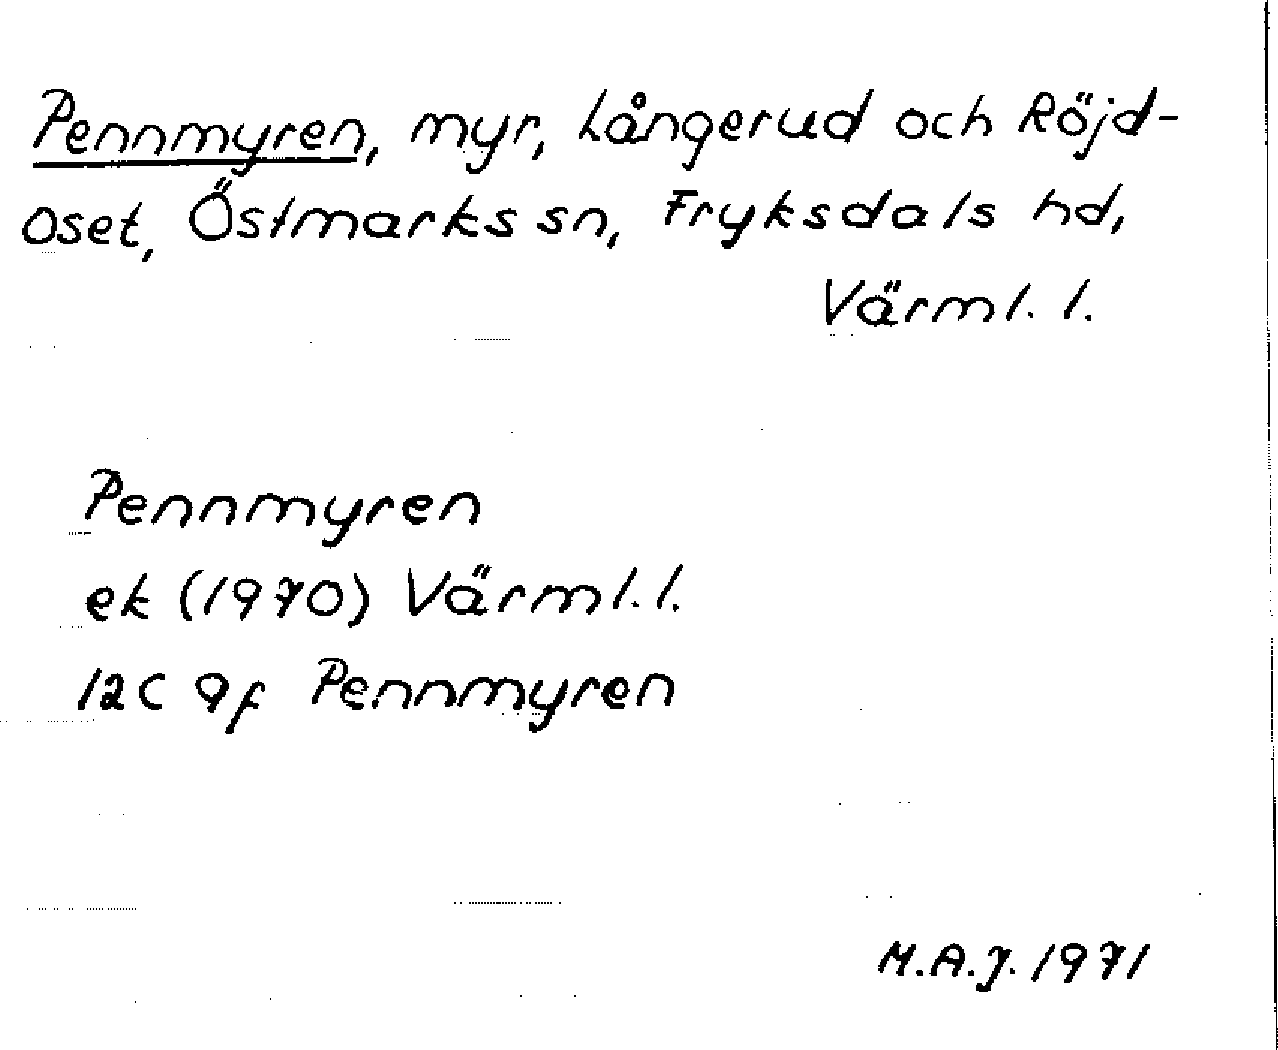 Pennmyren, myr, Långerud och Röjd-
oset, Östmarks sn, Fryksdals hd,
Värml. l.
Pennmyren
ek (1970) Värml. l.
12C 9f Pennmyren
M.A.J. 1971